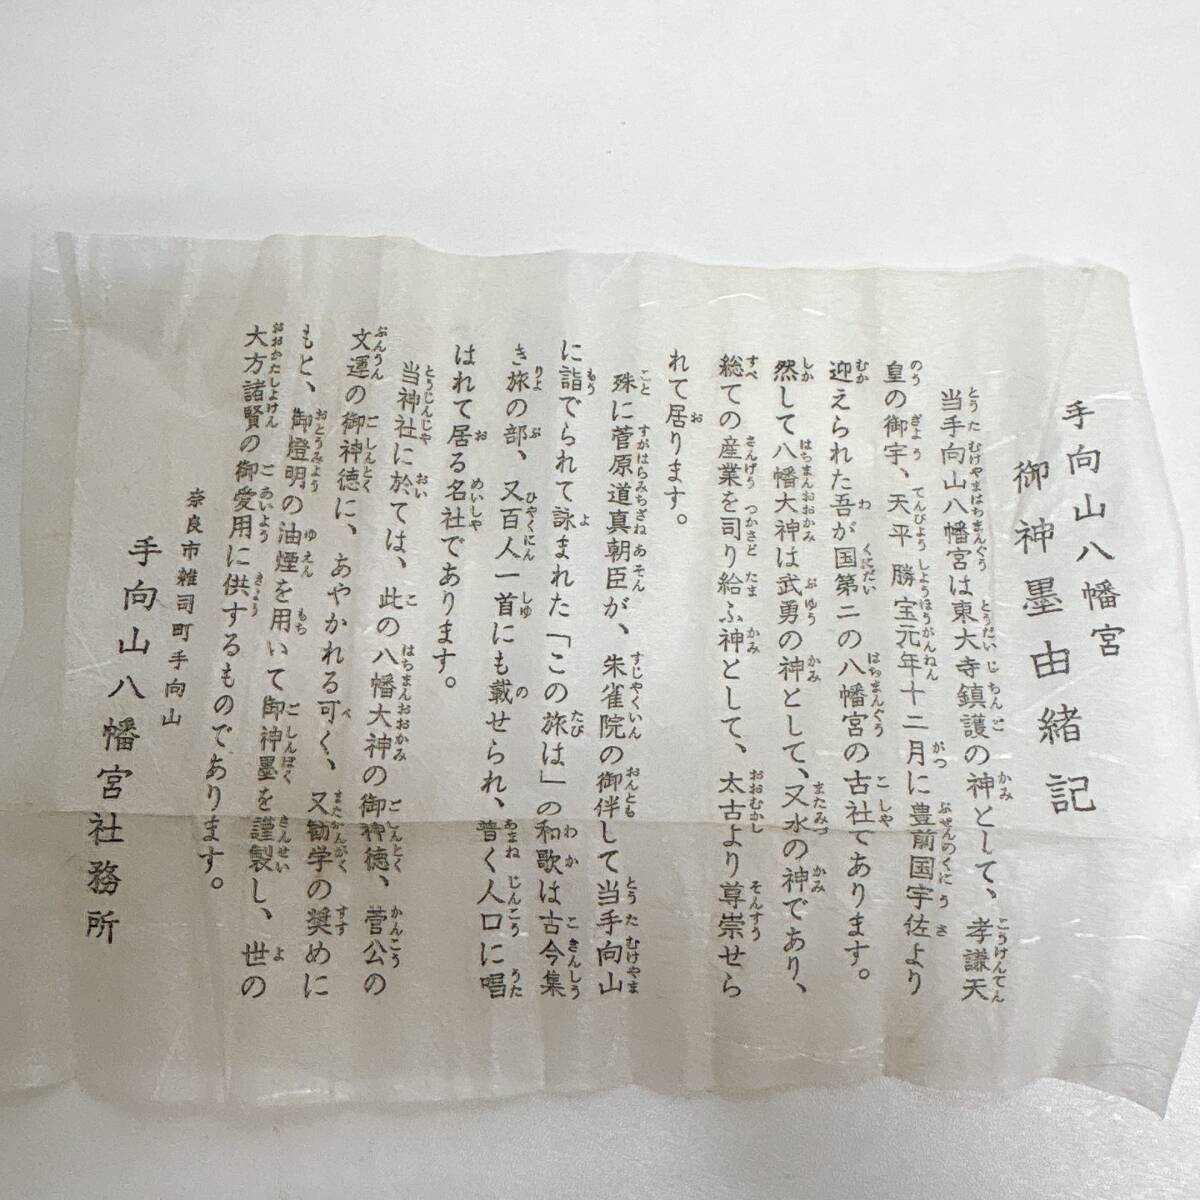 手向山八幡宮
御神墨由緒記
当手向山八幡宮は東大寺鎮護の神として、孝謙天
皇の御宇、天平勝宝元年十二月に豊前国宇佐より
迎えられた吾が国第二の八幡宮の古社であります。
然して八幡大神は武勇の神として、又水の神であり、
総ての産業を司り給ふ神として、太古より尊崇せら
れて居ります。
殊に菅原道真朝臣が、朱雀院の御伴して当手向山
に詣でられて詠まれた「この旅は」の和歌は古今集
き旅の部、又百人一首にも載せられ、普く人口に唱
はれて居る名社であります。
当神社に於ては、此の八幡大神の御神徳、菅公の
文運の御神徳に、あやかれる可く、又勧学の奨めに
もと、御燈明の油煙を用いて御神墨を謹製し、世の
大方諸賢の御愛用に供するものであります。
奈良市雑司町手向山
手向山八幡宮社務所